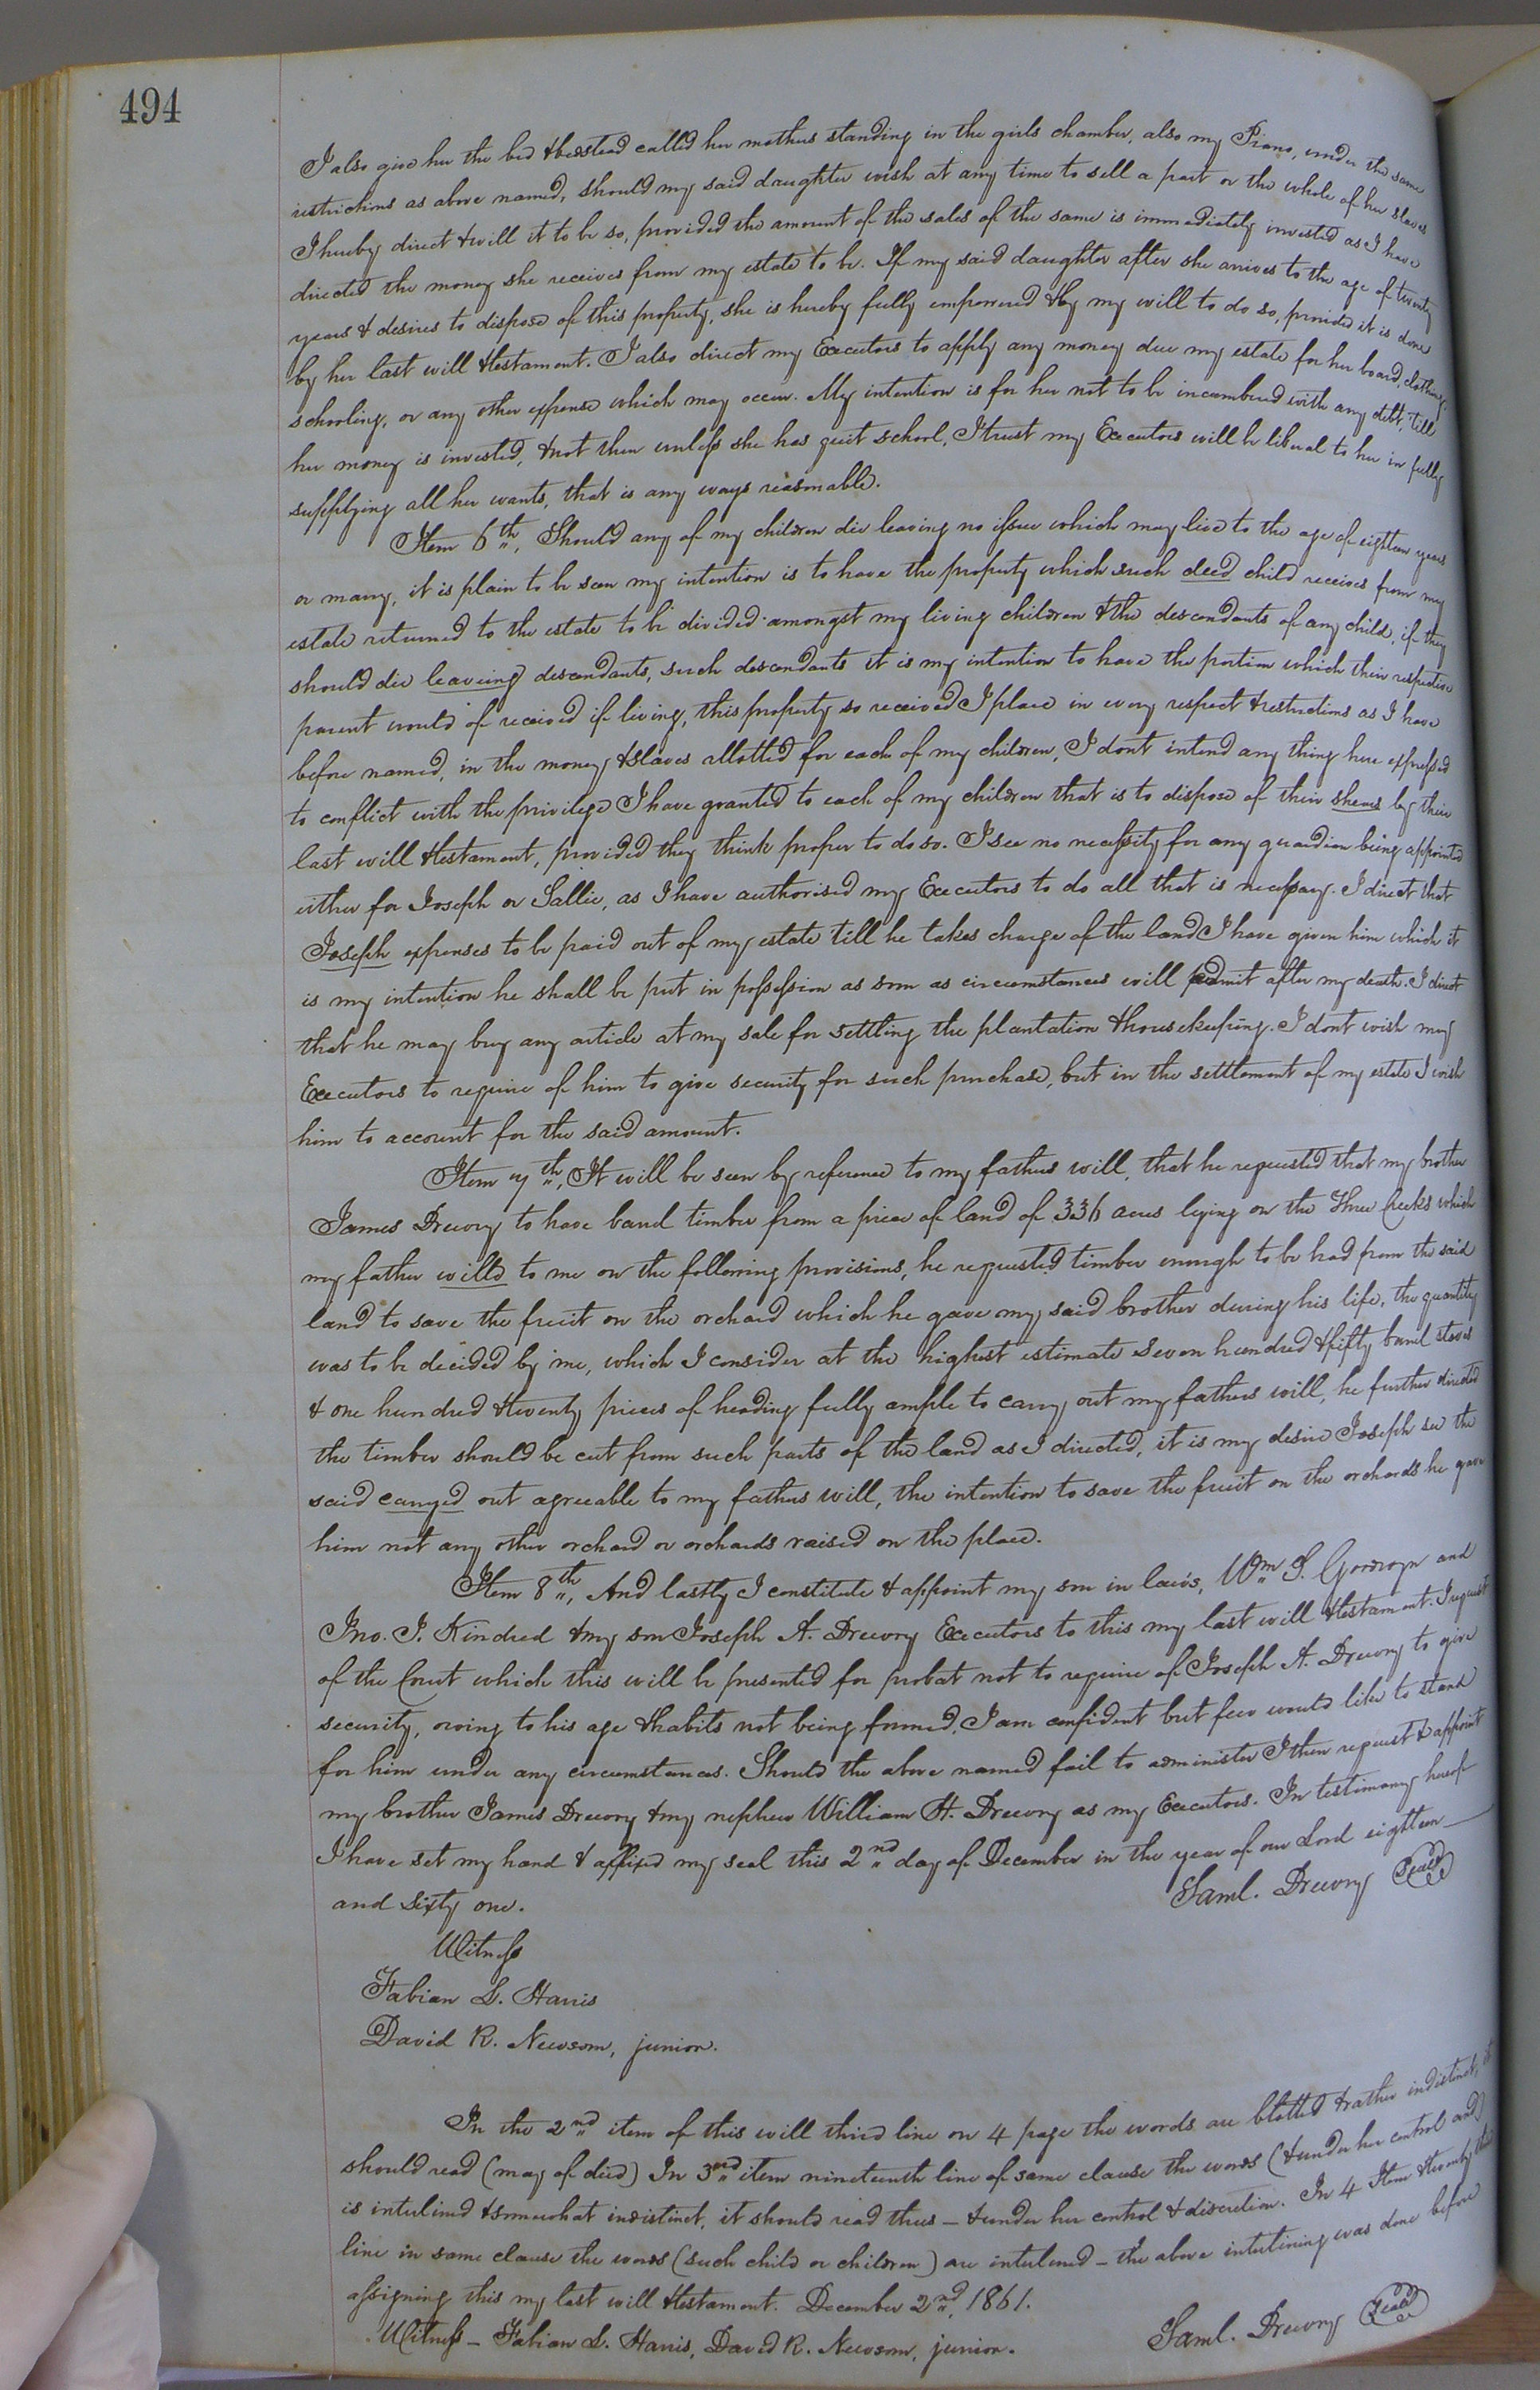 494
I also give her the bed & bedstead called her mothers standing in the girls chamber, also my Piano, under the same
restrictions as above named, should my said daughter wish at any time to sell a part or the whole of her slaves
I hereby direct & will it to be so, provided the amount of the sales of the same is immediately invested as I have
directed the money she receives from my estate to be. If my said daughter after she arrives to the age of twenty
years & desires to dispose of this property, she is hereby fully empowered & by my will to do so, provided it is done
by her last will & testament. I also direct my Executors to apply any money due my estate for her board, clothing,
schooling, or any other expense which may occur. My intention is for her not to be incumbered with any debt, till
her money is invested, & not then unless she has quit school, I trust my Executors will be liberal to her in fully
supplying all her wants, that is any ways reasonable.
Item 6th, Should any of my children die leaving no issue which may live to the age of eighteen years
or marry, it is plain to be seen my intention is to have the property which such deed child receives from my
estate returned to the estate to be divided amongst my living children & the descendants of any child, if they
should die leaveing descendants, such descendants it is my intention to have the portion which their respective
parent would of received if living, this property so received I place in every respect & restrictions as I have
before named, in the money & slaves allotted for each of my children, I dont intend any thing here expressed
to conflict with the privilege I have granted to each of my children that is to dispose of their shears by their
last will & testament, provided they think proper to do so. I see no necessity for any guardian being appointed
either for Joseph or Sallie, as I have authorised my Executors to do all that is necessary. I direct that
Joseph expenses to be paid out of my estate till he takes charge of the land I have given him which it
is my intention he shall be put in possession as soon as circumstances will admit after my death. I direct
that he may buy any article at my sale for settling the plantation & housekeeping. I dont wish my
Executors to require of him to give security for such purchase, but in the settlement of my estate I wish
him to account for the said amount.
Item 7th, It will be seen by reference to my fathers will, that he requested that my brother
James Drewry to have barrel timber from a piece of land of 336 acres lying on the Three Creeks which
my father willd to me on the following provisions, he requested timber enough to be had from the said
land to save the fruit on the orchard which he gave my said brother during his life, the quantity
was to be decided by me, which I consider at the highest estimate seven hundred & fifty barrel staves
& one hundred & twenty pieces of heading fully ample to carry out my fathers will, he further directed
the timber should be cut from such parts of the land as I directed, it is my desire Joseph see the
said carryed out agreeable to my fathers will, the intention to save the fruit on the orchards he gave
him not any other orchard or orchards raised on the place.
Item 8th, And lastly I constitute & appoint my son in laws, Wm S. Goodwyn and
Jno. J. Kindred & my son Joseph A. Drewry Executors to this my last will & testament. I request
of the Court which this will be presented for probat not to require of Joseph A. Drewry to give
security, owing to his age & habits not being formed, I am confident but few would like to stand
for him under any circumstances. Should the above named fail to administer I then request & appoint
my brother James Drewry & my nephew William H. Drewry as my Executors. In testimony hereof
I have set my hand & affixed my seal this 2nd day of December in the year of our Lord eighteen
and sixty one.
Saml. Drewry Seal
Witness
Fabian L. Harris
David R. Newsom, junior.
In the 2nd item of this will third line on 4 page the words are blotted & rather indistinct, it
should read (may of died) In 3rd item nineteenth line of same clause the words (& under her control and)
is interlined & somewhat indistinct, it should read thus — & under her control & discretion. In 4 Item twenty third
line in same clause the words (such child or children) are interlined — the above interlining was done before
assigning this my last will & testament. December 2nd, 1861.
Saml. Drewry Seal
Witness — Fabian L. Harris, David R. Newsom, junior.